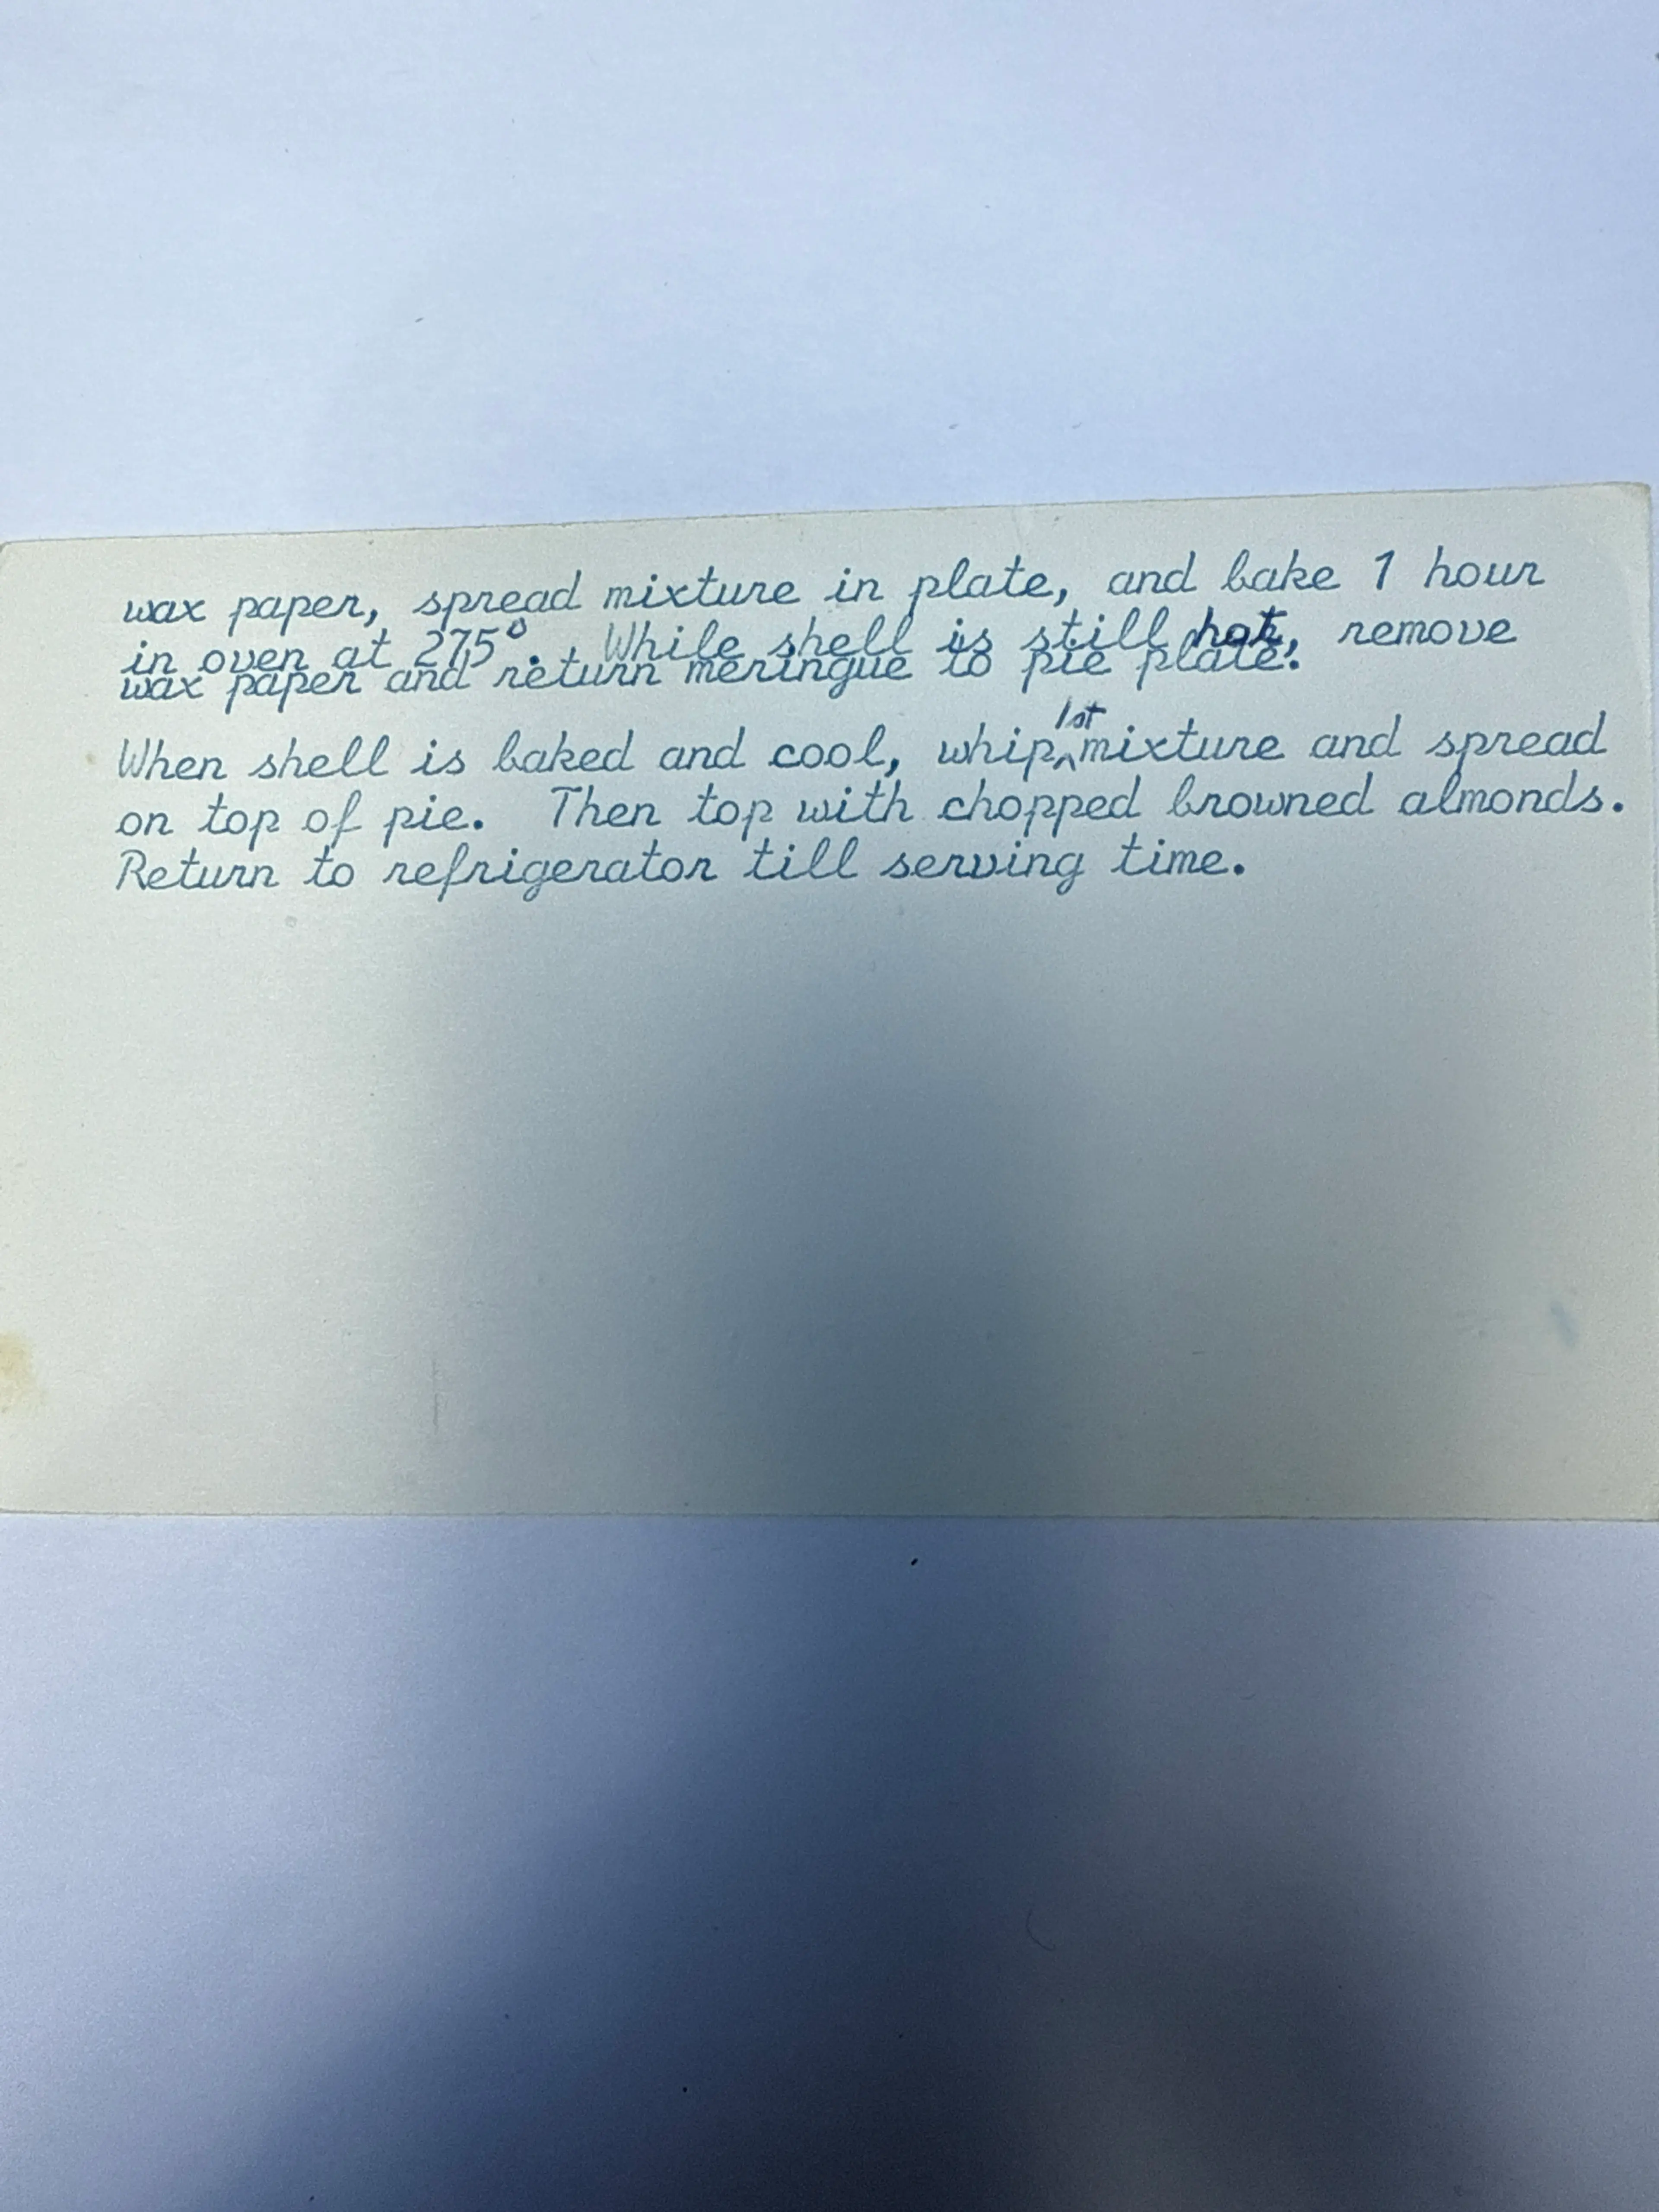 wax paper, spread mixture in plate, and bake 1 hour
in oven at 275°. While shell is still hot, remove
wax paper and return meringue to pie plate.
When shell is baked and cool, whip 1st mixture and spread
on top of pie. Then top with chopped browned almonds.
Return to refrigerator till serving time.